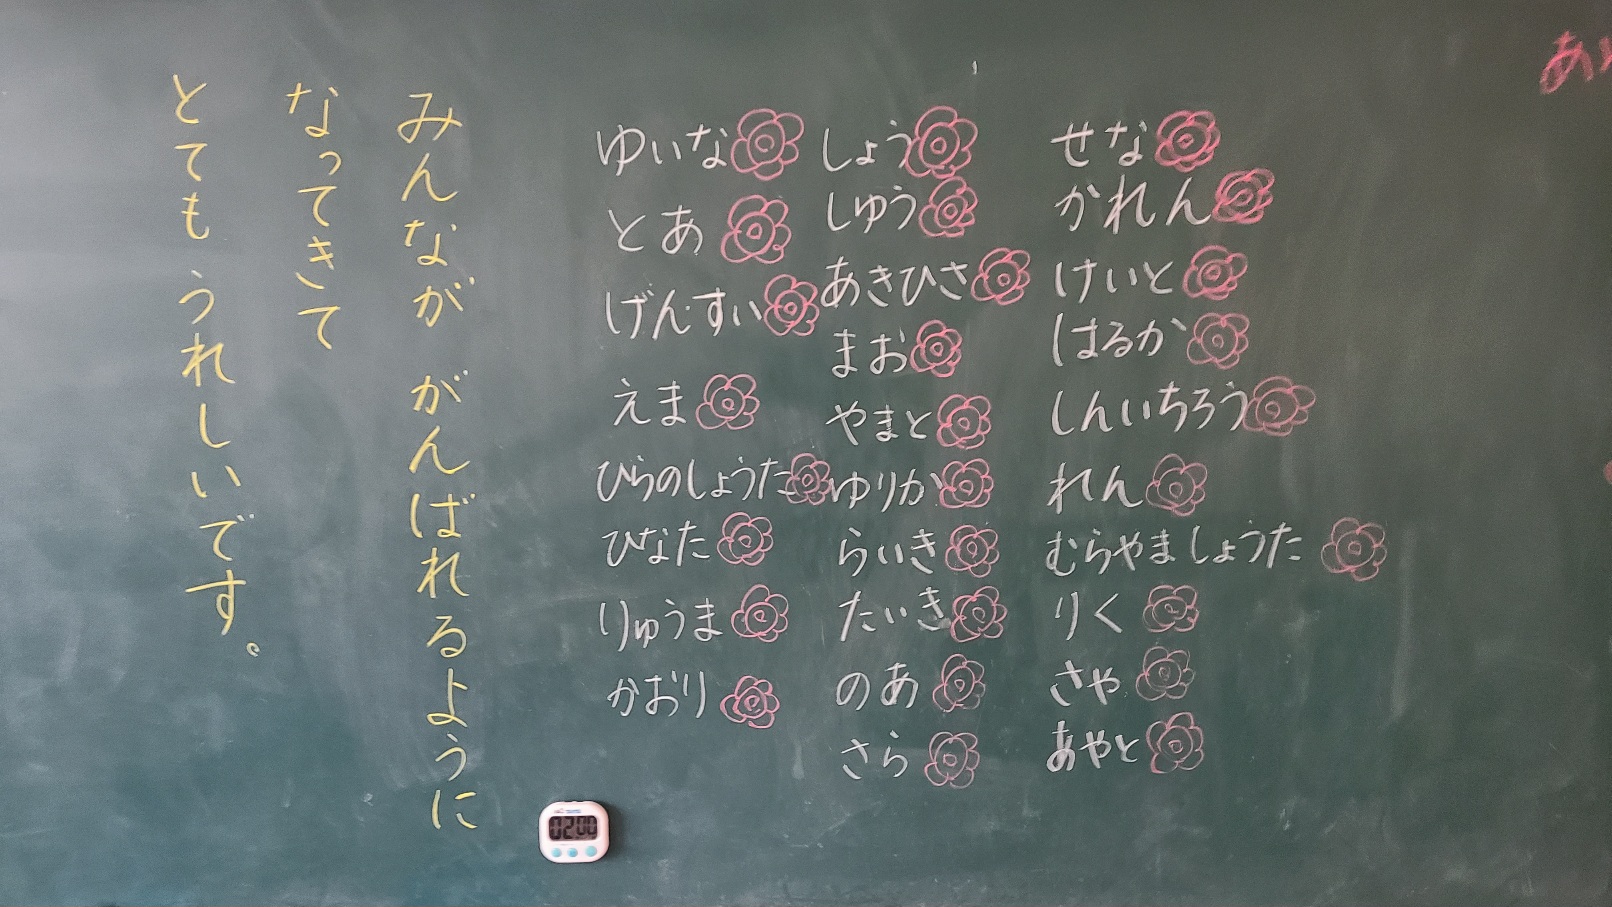 みんなが がんばれるように
なってきて
とても うれしいです。
せな
かれん
けいと
はるか
しんいちろう
れん
むらやましょうた
りく
さや
あやと
しょう
しゅう
あきひさ
まお
やまと
ゆりか
らいき
たいき
のあ
さら
ゆいな
とあ
げんすい
えま
ひらのしょうた
ひなた
りゅうま
かおり
02:00